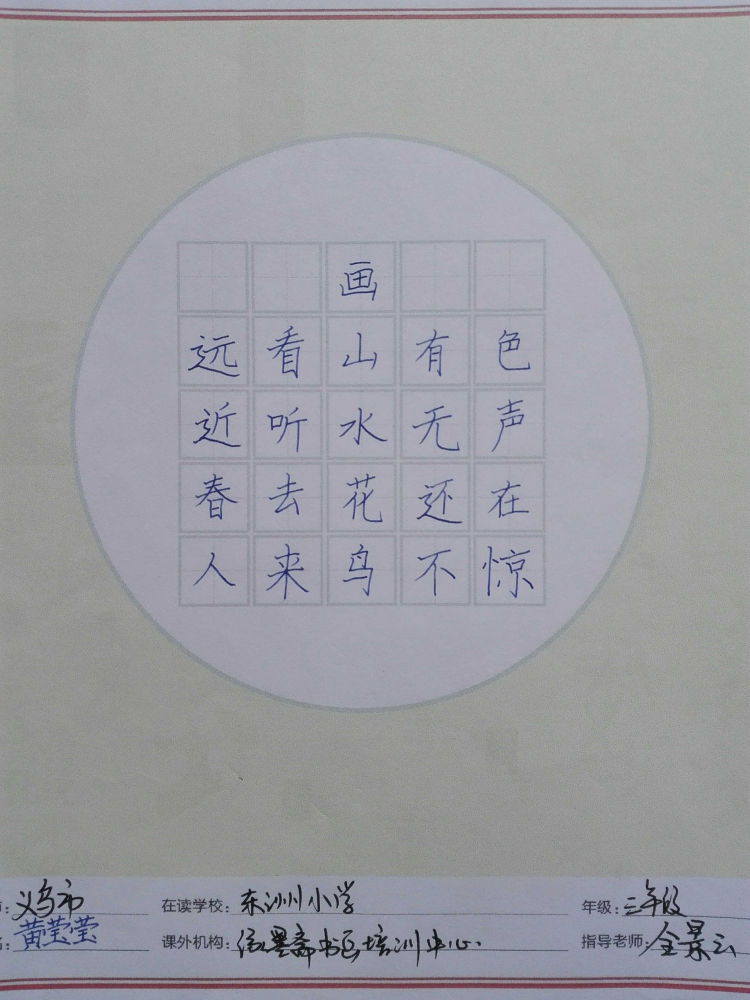 画
远看山有色
近听水无声
春去花还在
人来鸟不惊
:义乌市 在读学校:东洲小学 年级:三年级
:黄莹莹 课外机构:墨斋书画培训中心. 指导老师:金景云